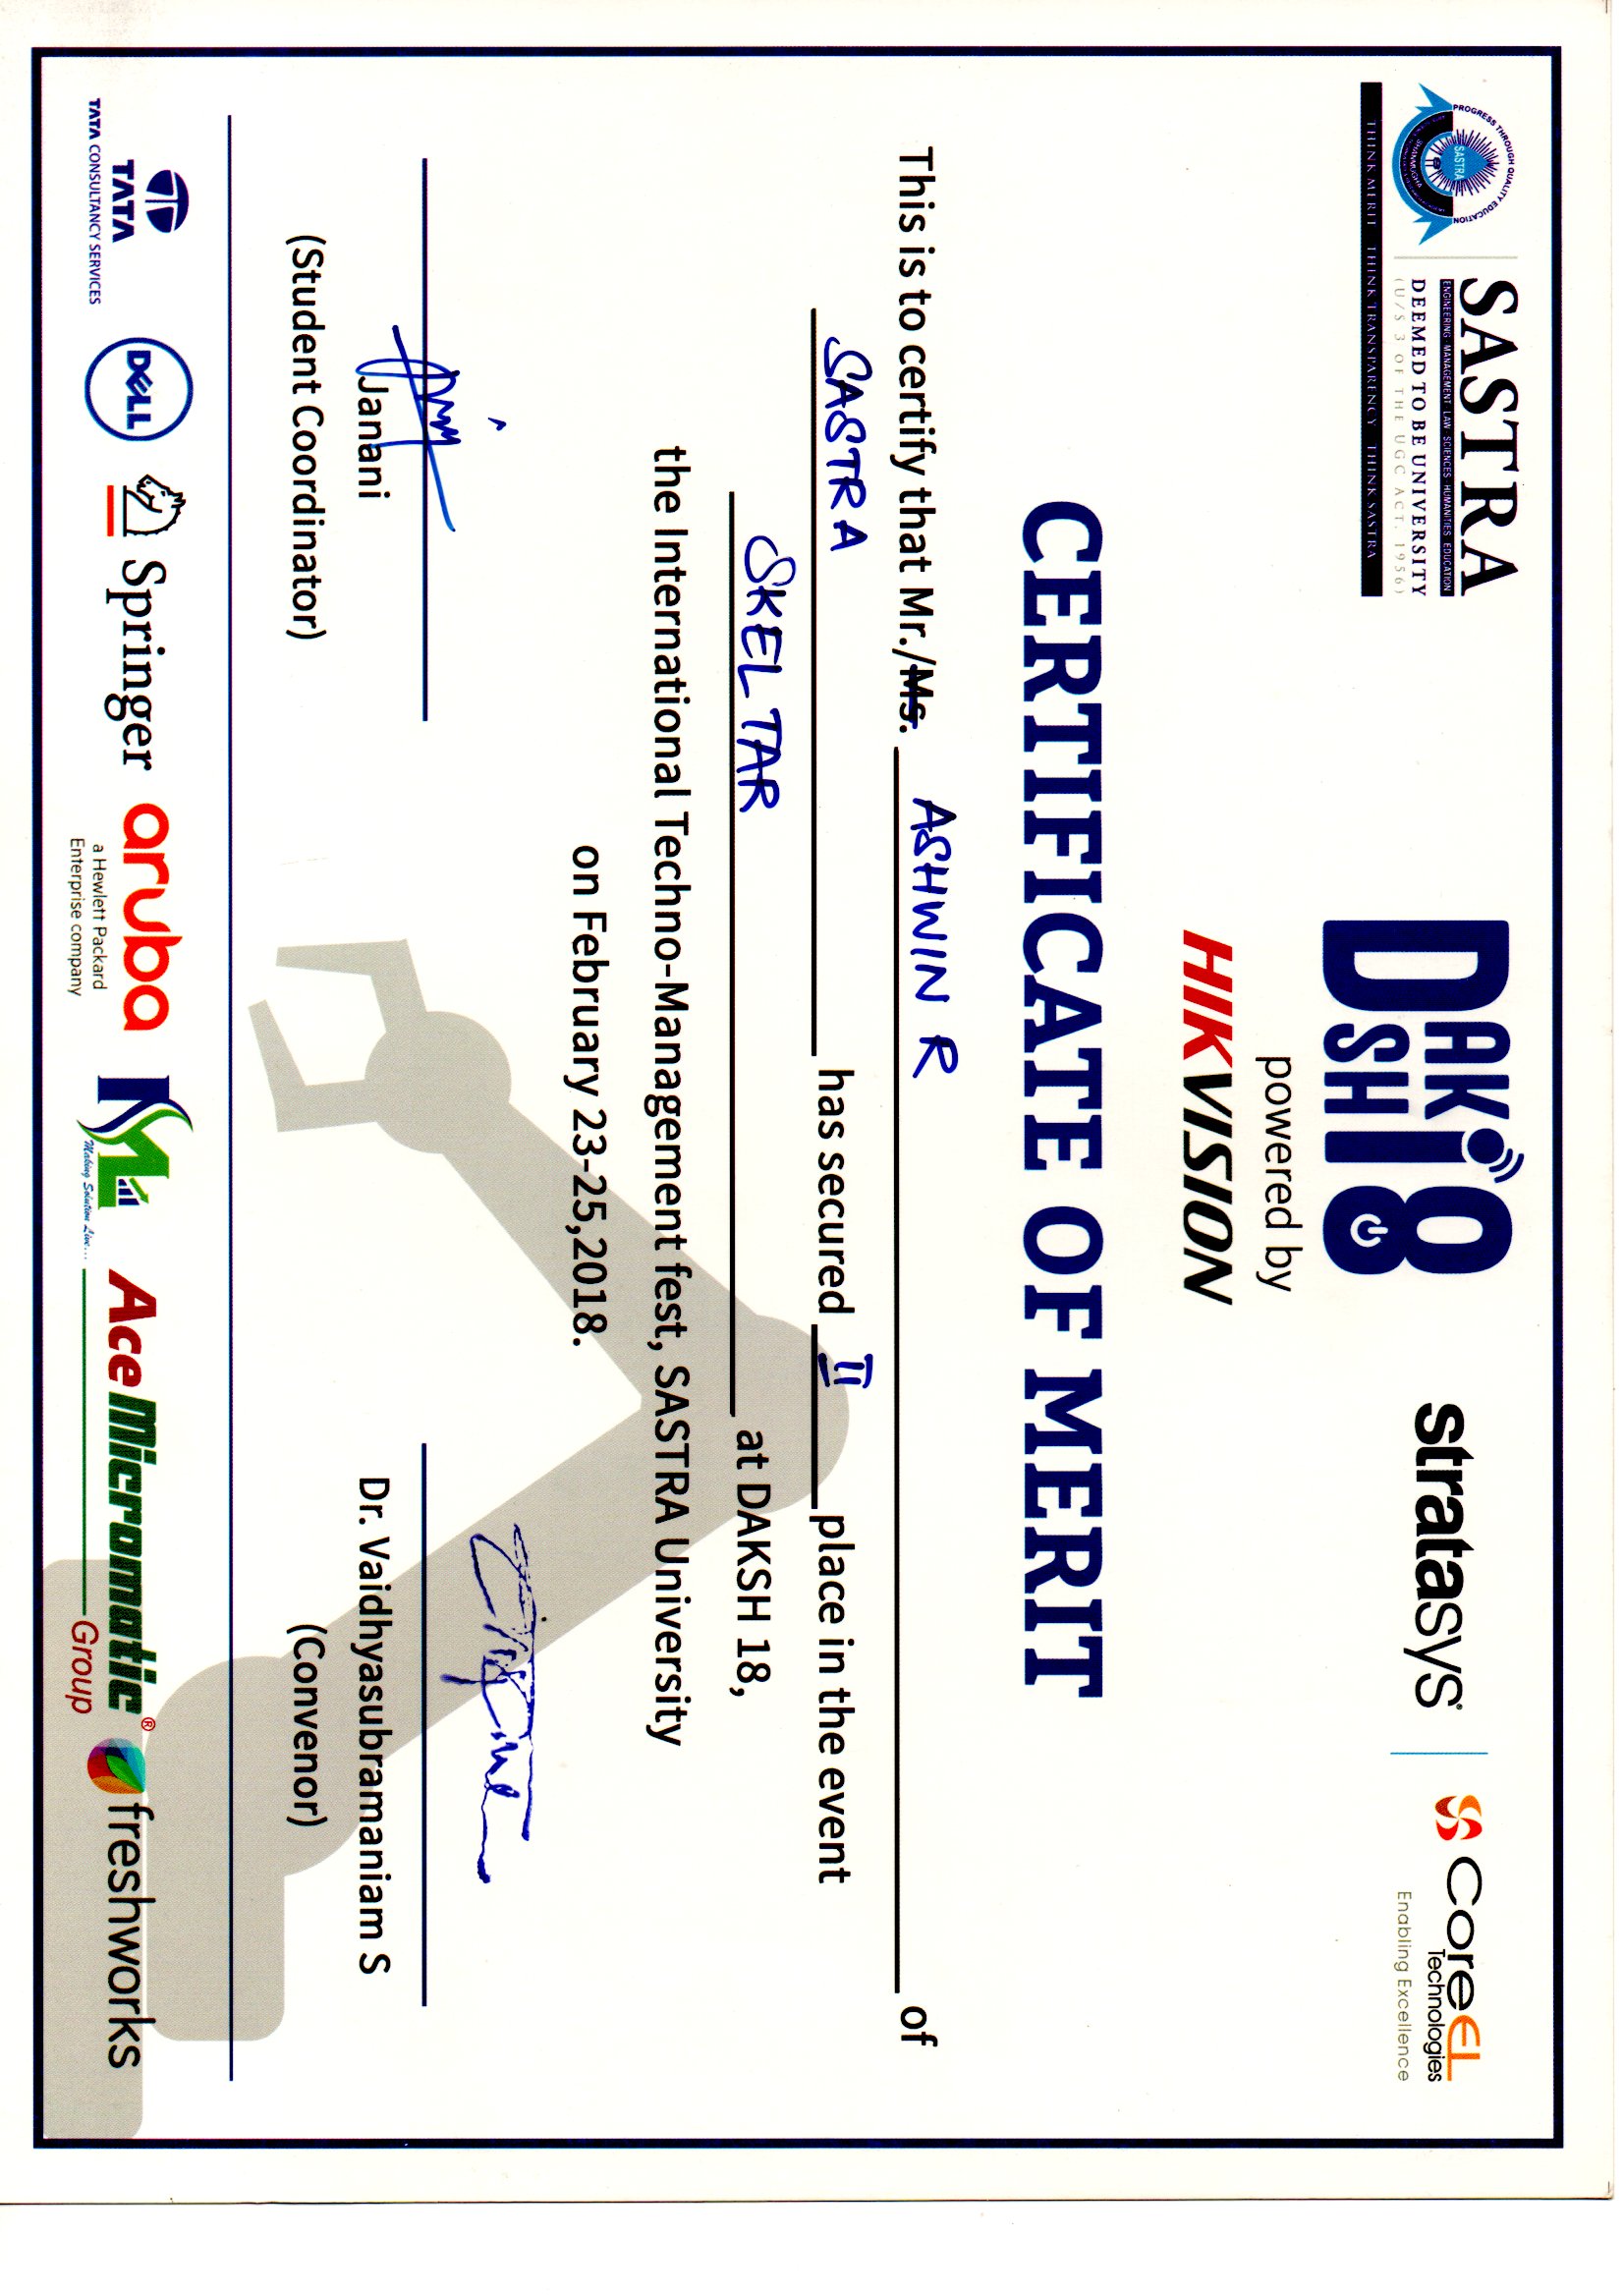 PROGRESS THROUGH QUALITY EDUCATION
SASTRA
SHANMUGHA
SASTRA
ENGINEERING · MANAGEMENT · LAW · SCIENCES · HUMANITIES · EDUCATION
DEEMED TO BE UNIVERSITY
(U/S 3 OF THE UGC ACT, 1956)
THINK MERIT THINK TRANSPARENCY THINK SASTRA
DAKSH18
stratasys
CoreEL
Technologies
Enabling Excellence
powered by
HIKVISION
CERTIFICATE OF MERIT
This is to certify that Mr./Ms. ASHWIN R of
SASTRA has secured II place in the event
SKELTAR at DAKSH 18,
the International Techno-Management fest, SASTRA University
on February 23-25,2018.
Janani
(Student Coordinator)
Dr. Vaidhyasubramaniam S
(Convenor)
TATA
TATA CONSULTANCY SERVICES
DELL
Springer
aruba
a Hewlett Packard
Enterprise company
Making Solution Live...
Ace Micromatic®
Group
freshworks